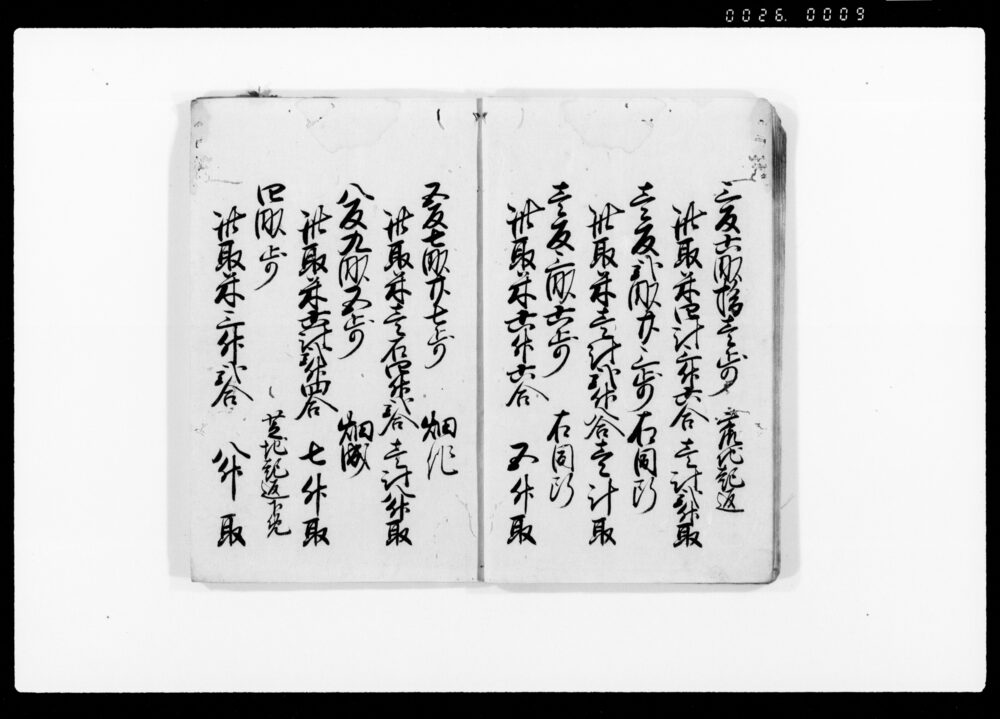 0026. 0009
三反六畝拾壱歩 荒地起返
此取米四斗三升六合 壱斗弐升取
壱反弐畝廿三歩 右同断
此取米壱斗弐升八合 壱斗取
壱反三畝六歩 右同断
此取米六升六合 五升取
五反七畝廿七歩 畑作
此取米壱石四升弐合 壱斗八升取
八反九畝五歩 畑成
此取米六斗弐升四合 七升取
四畝歩 芝地起返
此取米三升弐合 八升取